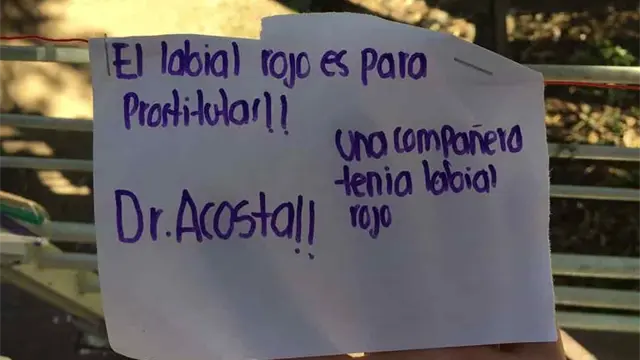 El labial rojo es para
Prostitutas!!
una compañera
tenia labial
rojo
Dr. Acosta!!